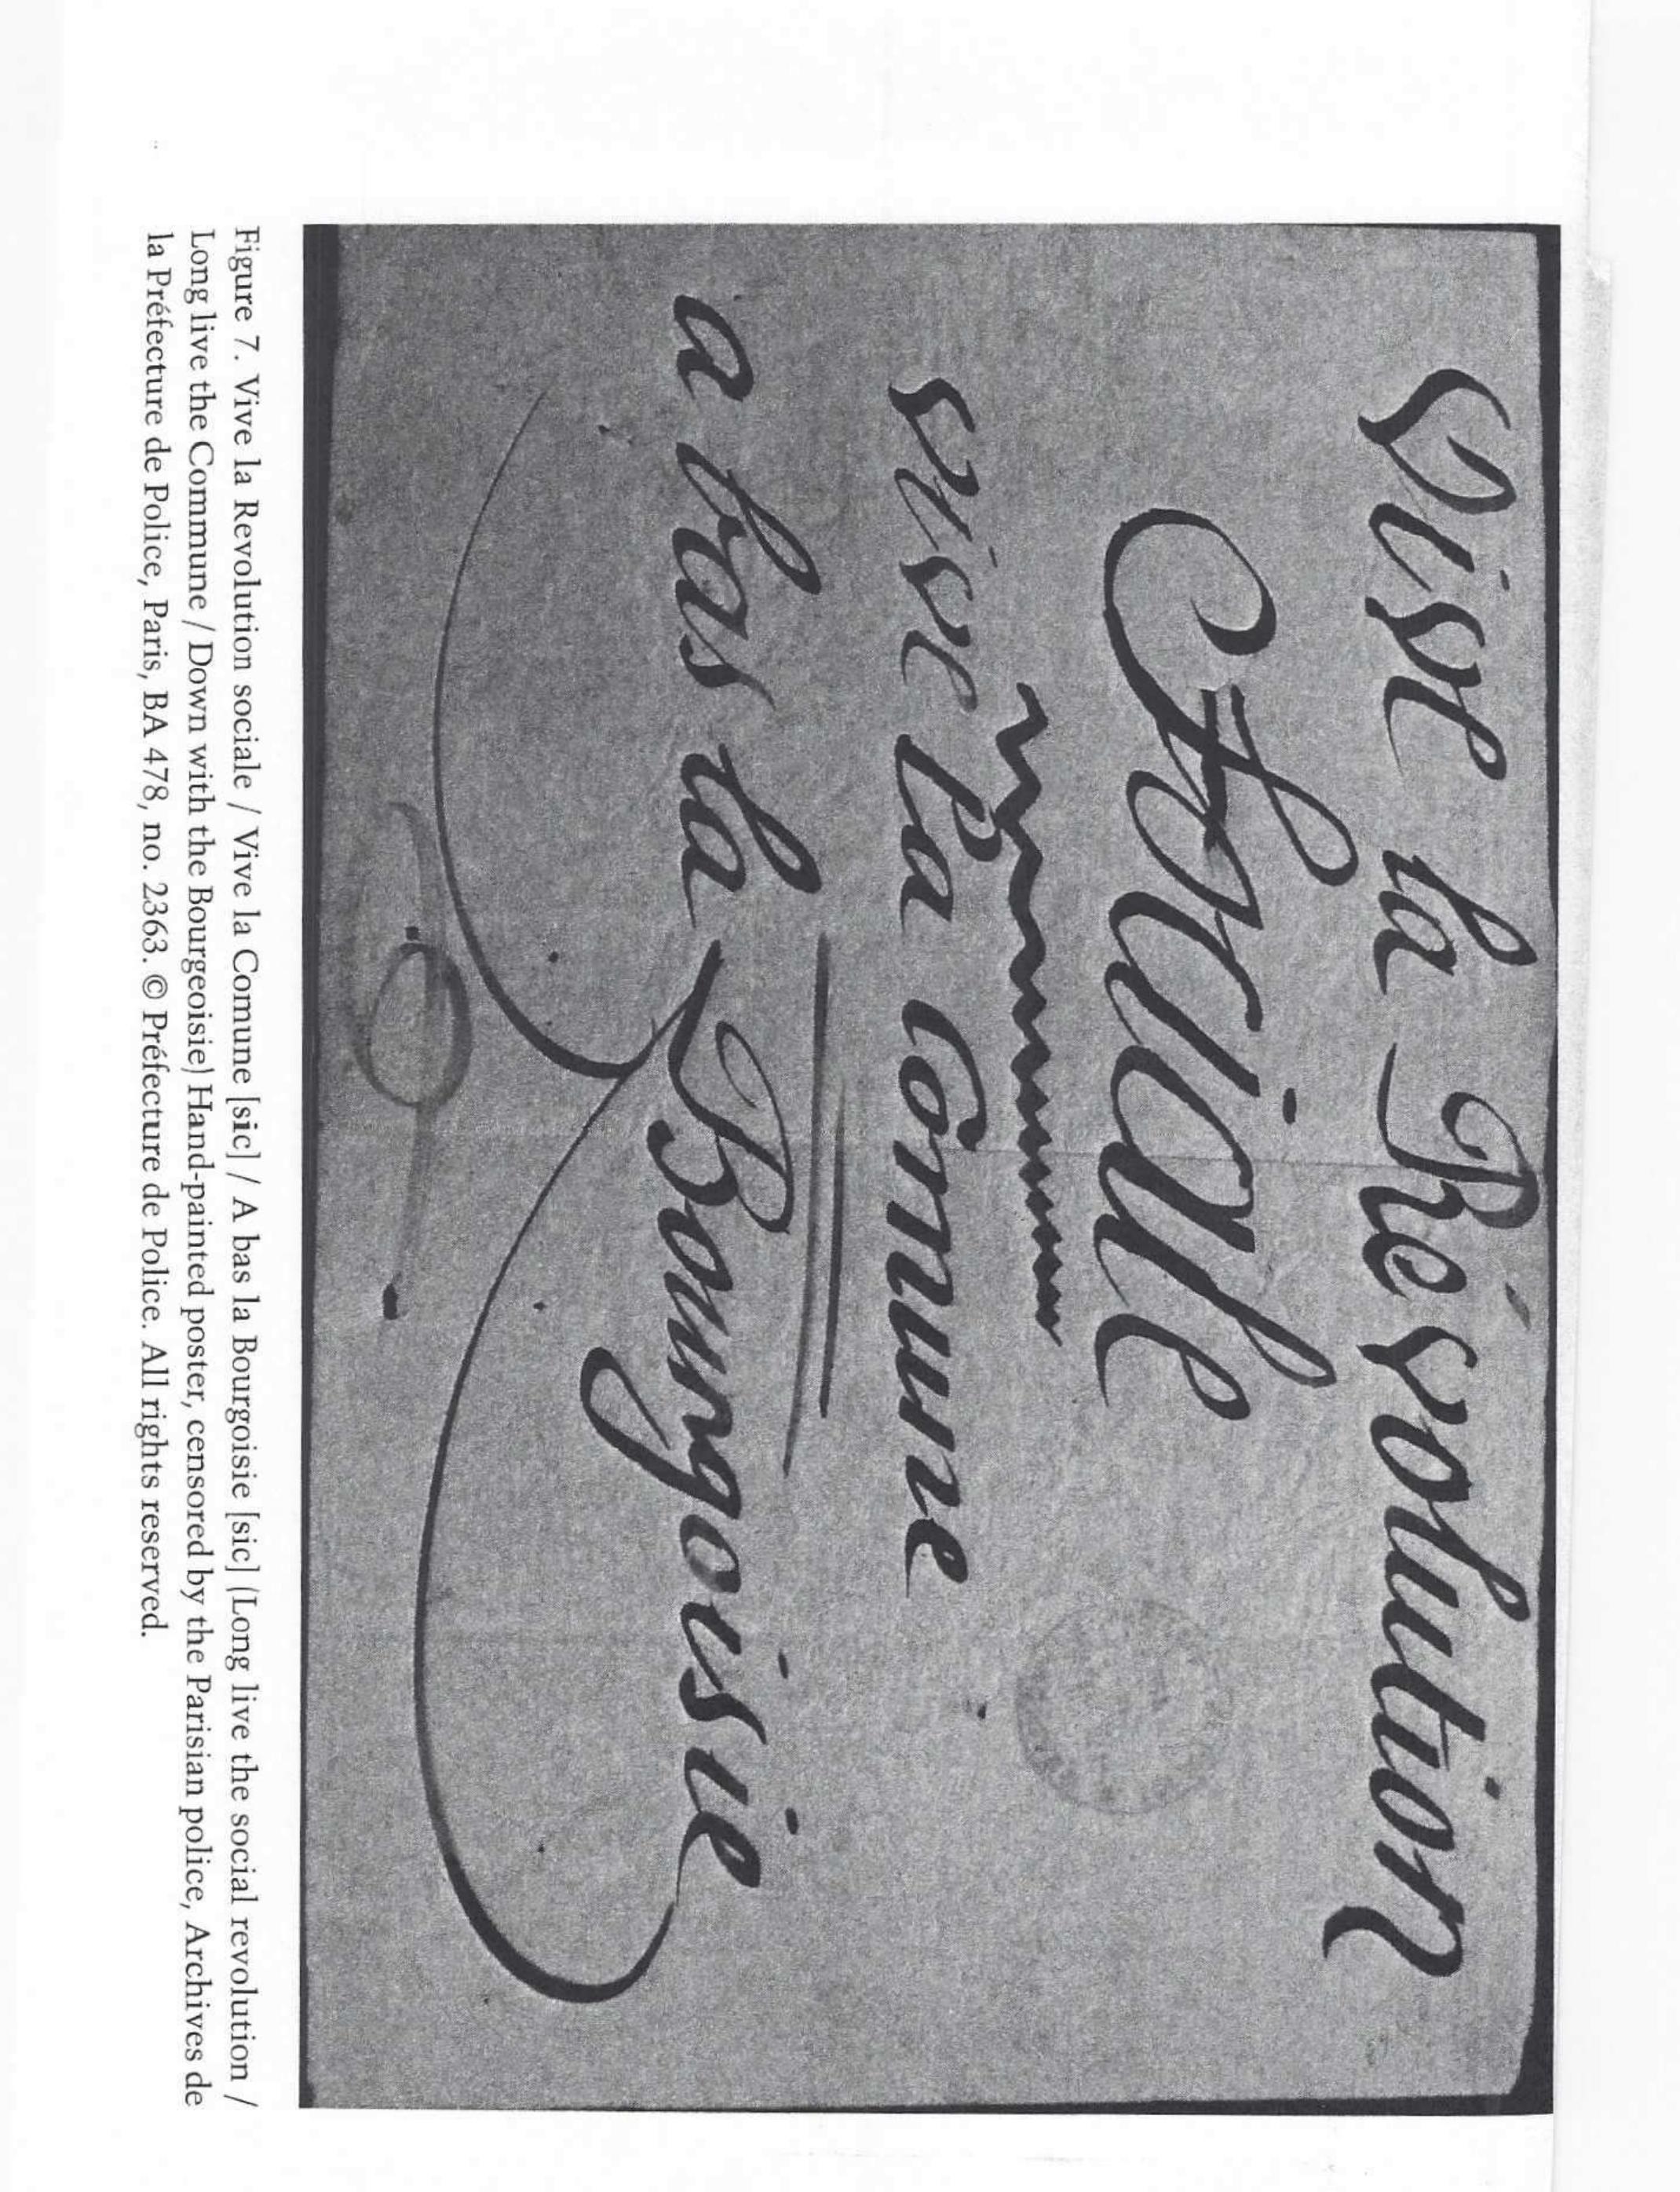 Vive la Révolution
Sociale
vive la Comune
a bas la Bourgoisie
Figure 7. Vive la Revolution sociale / Vive la Comune [sic] / A bas la Bourgoisie [sic] (Long live the social revolution /
Long live the Commune / Down with the Bourgeoisie) Hand-painted poster, censored by the Parisian police, Archives de
la Préfecture de Police, Paris, BA 478, no. 2363. © Préfecture de Police. All rights reserved.